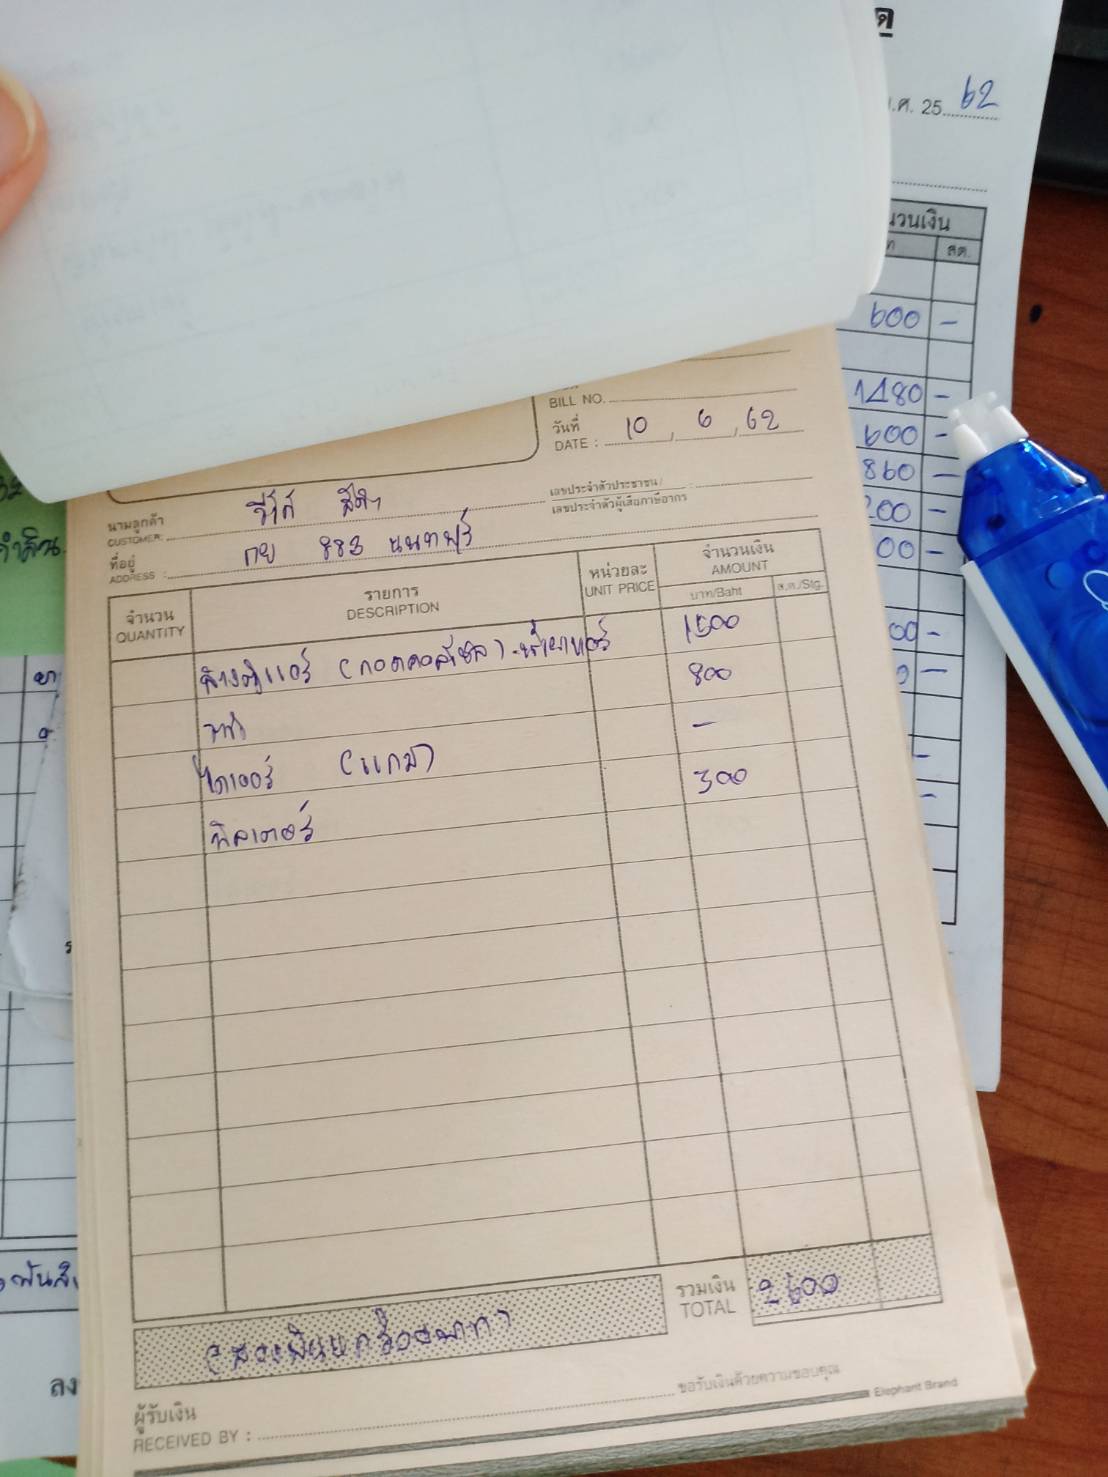 พ.ศ. 25 62
จำนวนเงิน
สต.
600 -
1480 -
600 -
860 -
200 -
00 -
00 -
BILL NO.
วันที่
DATE : 10 , 6 , 62
นามลูกค้า
CUSTOMER:
เลขประจำตัวประชาชน/
เลขประจำตัวผู้เสียภาษีอากร
ที่อยู่
ADDRESS : กษ 883 นนทบุรี
จำนวน
QUANTITY
รายการ
DESCRIPTION
หน่วยละ
UNIT PRICE
จำนวนเงิน
AMOUNT
บาท/Baht
ส.ต./Stg.
ล้างตู้แอร์ (ถอดคอล์ยเย็น) - น้ำยาแอร์ 1500
800
ไดเออร์ (แถม) -
ฟิลเตอร์ 300
(สองพันหกร้อยบาท)
รวมเงิน
TOTAL 2600
ผู้รับเงิน
RECEIVED BY :
ขอรับเงินด้วยความขอบคุณ
Elephant Brand